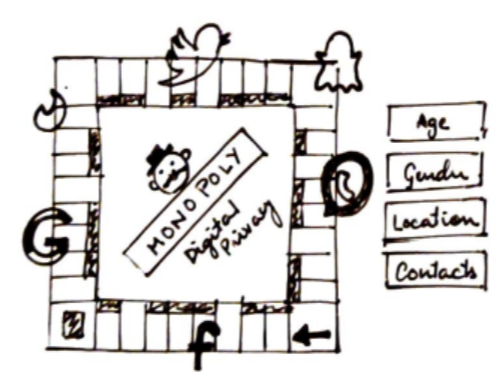 MONOPOLY
Digital
Privacy
G
f
Age
Gender
Location
Contacts